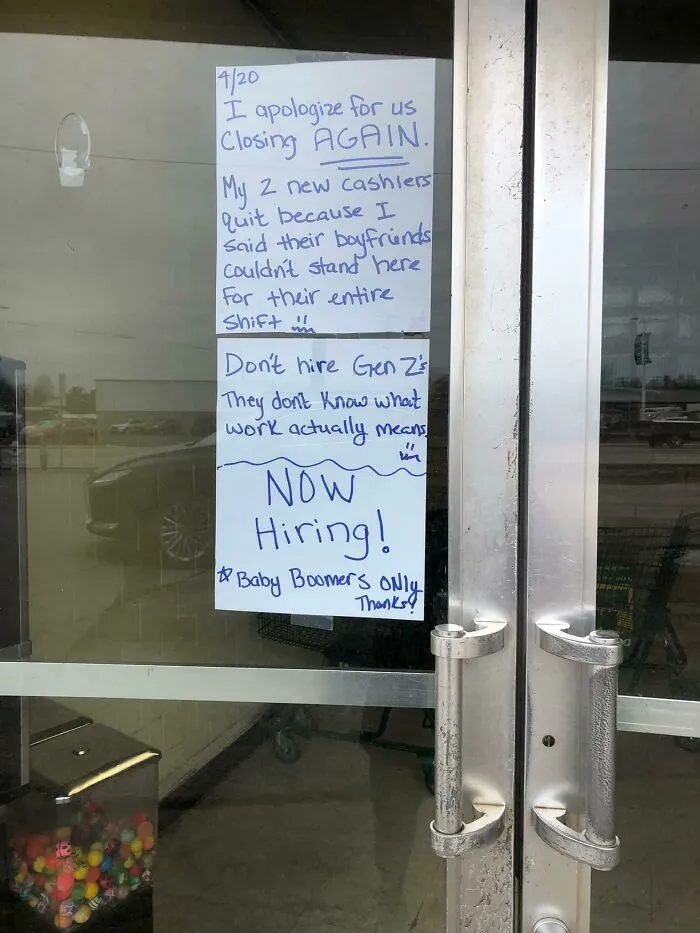 4/20
I apologize for us
Closing AGAIN.
My 2 new cashiers
quit because I
said their boyfriends
couldn't stand here
for their entire
shift
Don't hire Gen Z's
They don't know what
work actually means.
NOW
Hiring!
☆ Baby Boomers ONLY
Thanks!